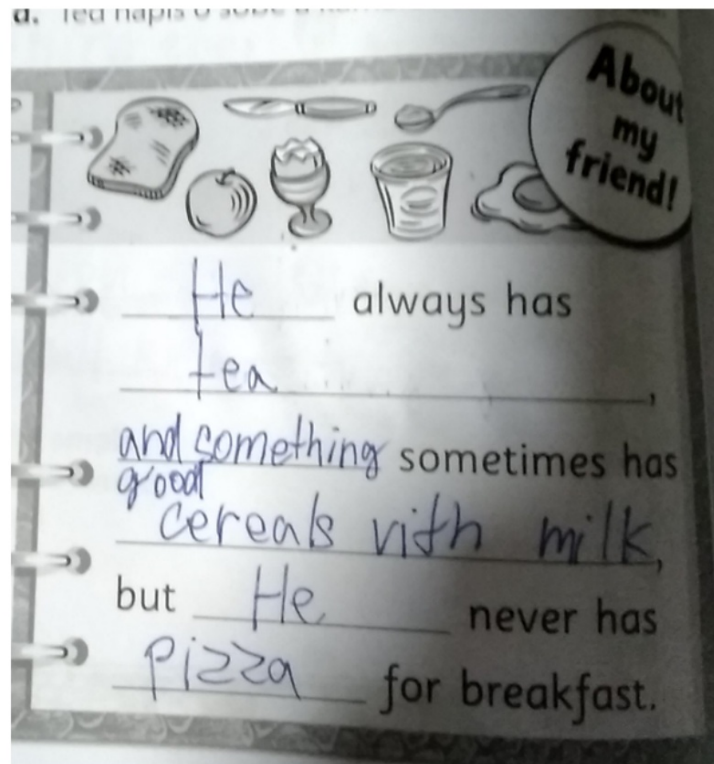 d. Teď napiš o sobě a
About
my
friend!
He always has
tea,
and something sometimes has
good
cereals vith milk,
but He never has
pizza for breakfast.